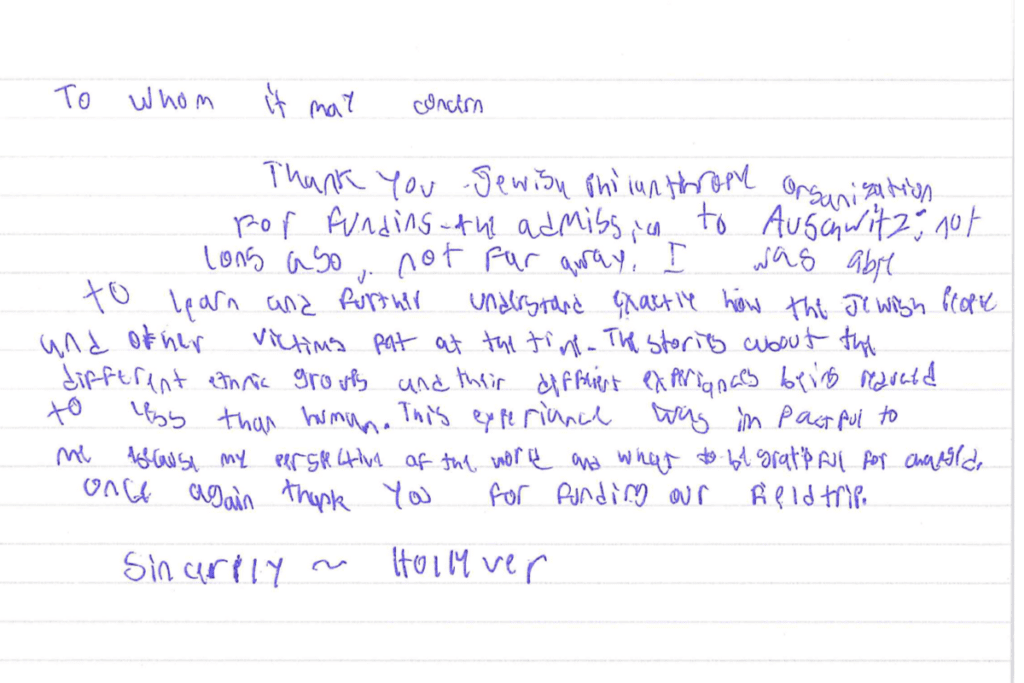 To whom it may concern
Thank you Jewish philanthropy organisation
For funding the admission to Auschwitz; not
long ago, not far away. I was able
to learn and further understand exactly how the Jewish People
and other victims at the time. The stories about the
different ethnic groups and their different experiances being reduced
to less than human. This experiance was impactful to
me because my perspective of the and what to be for
once again thank you for funding our field trip.
Sincerely ~